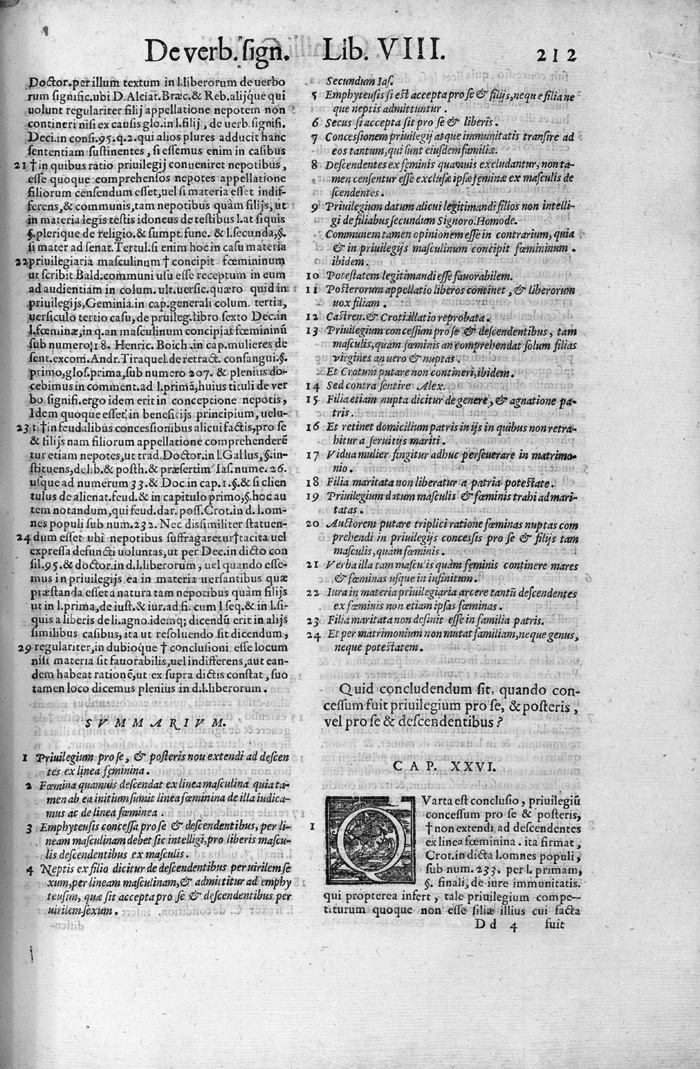 De verb. sign. Lib. VIII. 212
Doctor. per illum textum in l. liberorum de verbo
rum signific. ubi D. Alciat. Bræc. & Reb. alijque qui
uolunt regulariter filij appellatione nepotem non
contineri nisi ex causis glo. in l. filij, de uerb. signifi.
Deci. in consi. 95. q. 2. qui alios plures adducit hanc
sententiam sustinentes, si essemus enim in casibus
21 † in quibus ratio priuilegij conueniret nepotibus,
esse quoque comprehensos nepotes appellatione
filiorum censendum esset, uel si materia esset indif-
ferens, & communis, tam nepotibus quàm filijs, ut
in materia legis testis idoneus de testibus l. at siquis
§. plerique de religio. & sumpt. func. & l. secunda, §.
si mater ad senat. Tertul. si enim hoc in casu materia
22 priuilegiaria masculinum † concipit fœmininum
ut scribit Bald. communi usu esse receptum in eum
ad audientiam in colum. ult. uersic. quæro quid in
priuilegijs, Geminia. in cap. generali colum. tertia,
uersiculo tertio casu, de priuileg. libro sexto Dec. in
l. fœminæ, in q. an masculinum concipiat fœmininũ
sub numero, 18. Henric. Boich. in cap. mulieres de
sent. excom. Andr. Tiraquel. de retract. consangui. §.
primo, glos. prima, sub numero 207. & plenius do-
cebimus in comment. ad l. primã, huius tituli de ver
bo signifi. ergo idem erit in conceptione nepotis,
Idem quoque esset, in beneficijs principium, uelu-
23 ti † in feudalibus concessionibus alicui factis, pro se
& filijs nam filiorum appellatione comprehenderẽ
tur etiam nepotes, ut trad. Doctor. in l. Gallus, §. in-
stituens, de lib. & posth. & præsertim Ias. nume. 26.
usque ad numerum 33. & Doc in cap. 1. §. & si clien
tulus de alienat. feud. & in capitulo primo, §. hoc au
tem notandum, qui feud. dar. poss. Crot. in d. l. om-
nes populi sub num. 232. Nec dissimiliter statuen-
24 dum esset ubi nepotibus suffragaretur † tacita uel
expressa defuncti uoluntas, ut per Dec. in dicto con
sil. 95. & doctor. in d. l. liberorum, uel quando esse-
mus in priuilegijs ea in materia uersantibus quæ
præstanda esset a natura tam nepotibus quàm filijs
ut in l. prima, de iust. & iur. ad fi. cum l. seq. & in l. si-
quis a liberis de li. agno. idemq; dicendũ erit in alijs
similibus casibus, ita ut resoluendo sit dicendum,
29 regulariter, in dubioque † conclusioni esse locum
nisi materia sit fauorabilis, uel indifferens, aut ean-
dem habeat rationẽ, ut ex supra dictis constat, suo
tamen loco dicemus plenius in d. l. liberorum.
SVMMARIVM.
1 Priuilegium pro se, & posteris non extendi ad descen
tes ex linea feminina.
2 Fœmina quamuis descendat ex linea masculina quia ta-
men ab ea initium sumit linea fœminina de illa iudica-
mus ac de linea fœminea.
3 Emphyteusis concessa pro se & descendentibus, per li-
neam masculinam debet sic intelligi, pro liberis mascu-
lis descendentibus ex masculis.
4 Neptis ex filio dicitur de descendentibus per uirilem se
xum, per lineam masculinam, & admittitur ad emphy
teusim, quæ sit accepta pro se & descendentibus per
uirilem sexum.
Secundum Ias.
5 Emphyteusis si est accepta pro se & filijs, neque filia ne
que neptis admittuntur.
6 Secus si accepta sit pro se & liberis.
7 Concessionem priuilegij atque immunitatis transire ad
eos tantum, qui sunt eiusdem familiæ.
8 Descendentes ex feminis quamuis excludantur, non ta-
men censentur esse exclusæ ipsæ feminæ ex masculis de
scendentes.
9 Priuilegium datum alicui legitimandi filios non intelli-
gi de filiabus secundum Signoro. Homode.
Communem tamen opinionem esse in contrarium, quia
& in priuilegijs masculinum concipit fœmininum.
ibidem.
10 Potestatem legitimandi esse fauorabilem.
11 Posterorum appellatio liberos continet, & liberorum
uox filiam.
12 Castren. & Croti. illatio reprobata.
13 Priuilegium concessum pro se & descendentibus, tam
masculis, quàm fœminis an comprehendat solum filias
virgines an uero & nuptas.
Et Crotum putare non contineri, ibidem.
14 Sed contra sentire Alex.
15 Filia etiam nupta dicitur de genere, & agnatione pa-
tris.
16 Et retinet domicilium patris in ijs in quibus non retra-
hitur a seruitijs mariti.
17 Vidua mulier fingitur adhuc perseuerare in matrimo-
nio.
18 Filia maritata non liberatur a patria potestate.
19 Priuilegium datum masculis & fœminis trahi ad mari-
tatas.
20 Auctorem putare triplici ratione fœminas nuptas com
prehendi in priuilegijs concessis pro se & filijs tam
masculis, quàm fœminis.
21 Verba illa tam masculis quàm feminis continere mares
& fœminas usque in infinitum.
22 Iura in materia priuilegiaria arcere tantũ descendentes
ex fœminis non etiam ipsas fœminas.
23 Filia maritata non desinit esse in familia patris.
24 Et per matrimonium non mutat familiam, neque genus,
neque potestatem.
Quid concludendum sit, quando con-
cessum fuit priuilegium pro se, & posteris,
vel pro se & descendentibus?
CAP. XXVI.
QVarta est conclusio, priuilegiũ
concessum pro se & posteris,
1 † non extendi ad descendentes
ex linea fœminina. ita firmat,
Crot. in dicta l. omnes populi,
sub num. 233. per l. primam,
§. finali, de iure immunitatis.
qui propterea infert, tale priuilegium compe-
titurum quoque non esse filiæ illius cui facta
Dd 4 fuit